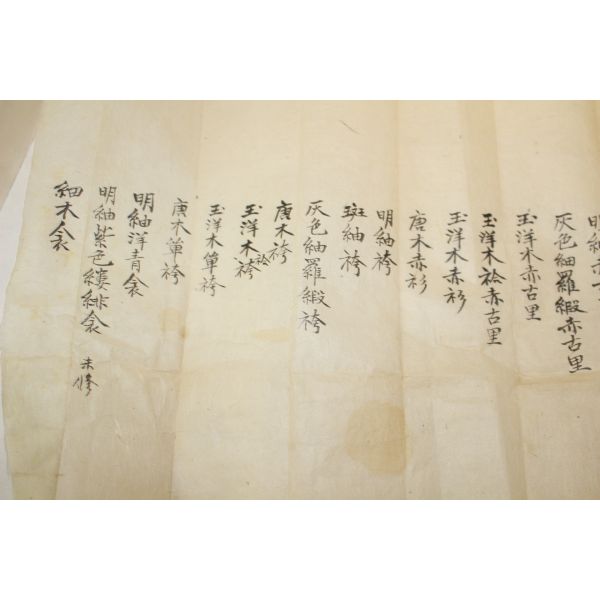 明紬赤古里
灰色紬羅緞赤古里
玉洋木赤古里
玉洋木袷赤古里
玉洋木赤衫
唐木赤衫
明紬袴
斑紬袴
灰色紬羅緞袴
唐木袴
玉洋木袷袴
玉洋木單袴
唐木單袴
明紬洋青衾
明紬紫色縷緋衾 未修
細木衾